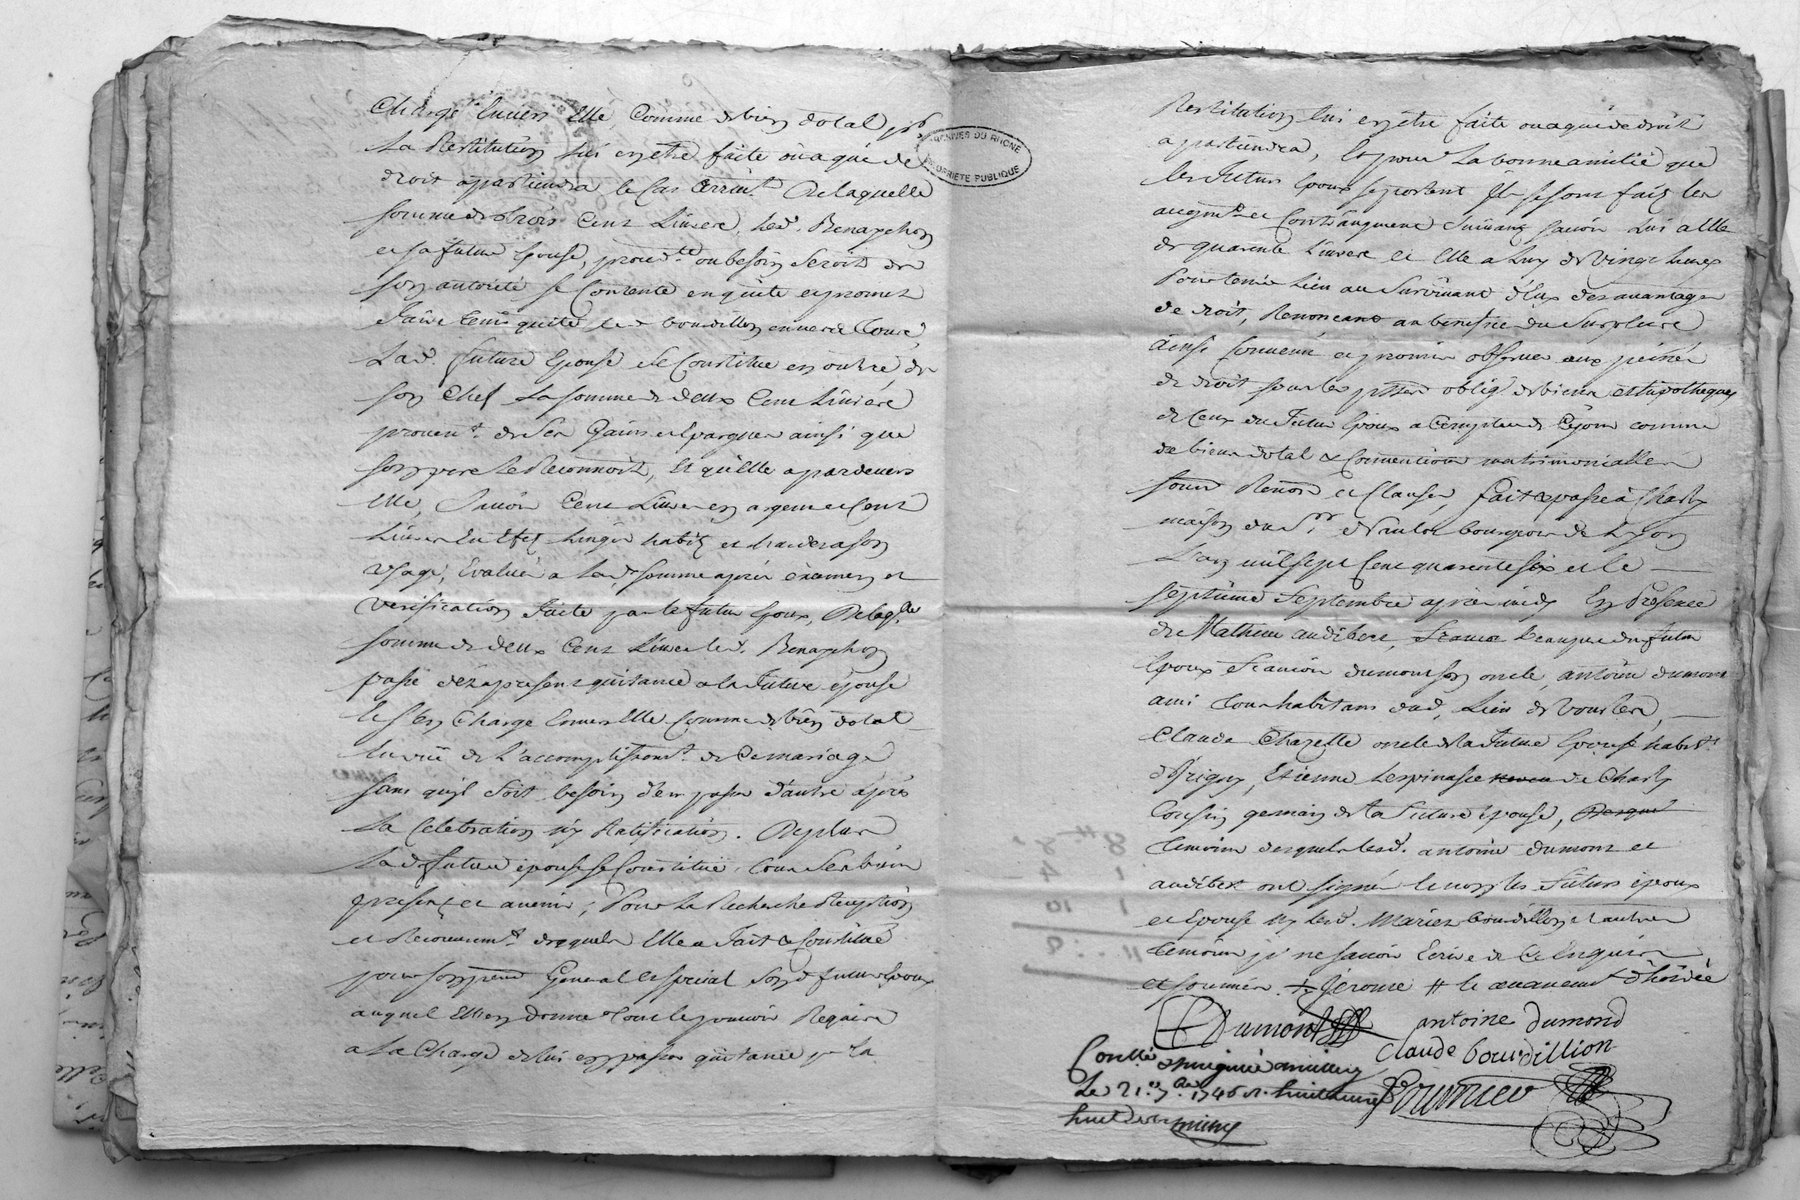 Chargé Envers Elle, Comme de bien dotal pr
La Restitution lui en être faite ou a qui de
droit apartiendra le Cas arrivt. De laquelle
somme de trois Cent Livres, led. Benaychon
et sa future Epouse, procedte. ou besoin Seroit de
son autorité se Contente en quitte et promet
faire tenir quitte led bourdillon envers et Contre
Lad. future Epouse se Constitue en outre de
son Chef La somme de deux Cent Livres
provent. de Ses Gains et Epargnes ainsi que
son pere Le Reconnoit, et qu'elle a pardevers
Elle, Savoir Cent Livres en argent et Cent
Livres En Effets Linges habits et hardes a son
usage, Evalués a lad. somme après examen et
verification faite par le futur Epoux, De laqlle
somme de deux Cent Livres led. Benaychon
passe dez a present quitance a la future épouse
et s'en Charge Envers Elle Comme de bien dotal
En vüe de L'accomplissemt. de Ce mariage
sans qu'il soit besoin d'en passer d'autre après
La Celebration ny Ratification. De plus
La d. future epouse se Constitue tous Ses biens
presents et avenir, Pour La Recherche Reception
et Recouvremt. desquels Elle a fait & Constitué
pour son procur. General et special Sond. futur Epoux
auquel Elle en donne tout le pouvoir Requis
a La Charge de lui en passer quitance pr la
ARCHIVES DU RHONE
PROPRIETE PUBLIQUE
Restitution lui en être faite ou a qui de droit
apartiendra, Et pour La bonne amitié que
les futurs Epoux se portent Ils se sont faits les
augmt. et Contraugment suivants savoir Lui a Elle
de quarente Livres et Elle a Luy de vingt Livres
Pour tenir Lieu au Survivant d'Eux des avantages
de droit, Renonçant au benefice du Surplus
ainsi Convenu et promis observer aux peines
de droit sous les ptes oblig. de biens et hipotheques
de Ceux du futur Epoux a Compter de Ce jour comme
de biens dotal & Conventions matrimonialles
sous Renon. et Clauses, fait et passé à Charly
maison du Sr. bourgeois de Lyon
L'an mil sept Cent quarente six et le
septième Septembre après midy En Presence
de Mathieu audibert, du futur
Epoux François dumont son oncle, antoine dumont
ami tous habitans dud. Lieu de Vourles,
Claude Chazelle oncle de la future Epouse habitt.
d'Irigny, Etienne Lespinasse de Charly
Cousin germain de La future épouse,
temoins desquels lesd. antoine dumont et
audibert ont signé et non les futurs époux
et Epouse ny lesd. Mariés bourdillon et autres
temoins pr. ne savoir Ecrire de Ce Enquis
et sommés. + Jérome # le
Dumont antoine dumond
Claude bourdillion
Conllé
Le 21e. 7bre 1746 Rt. huit Livres
huit sols